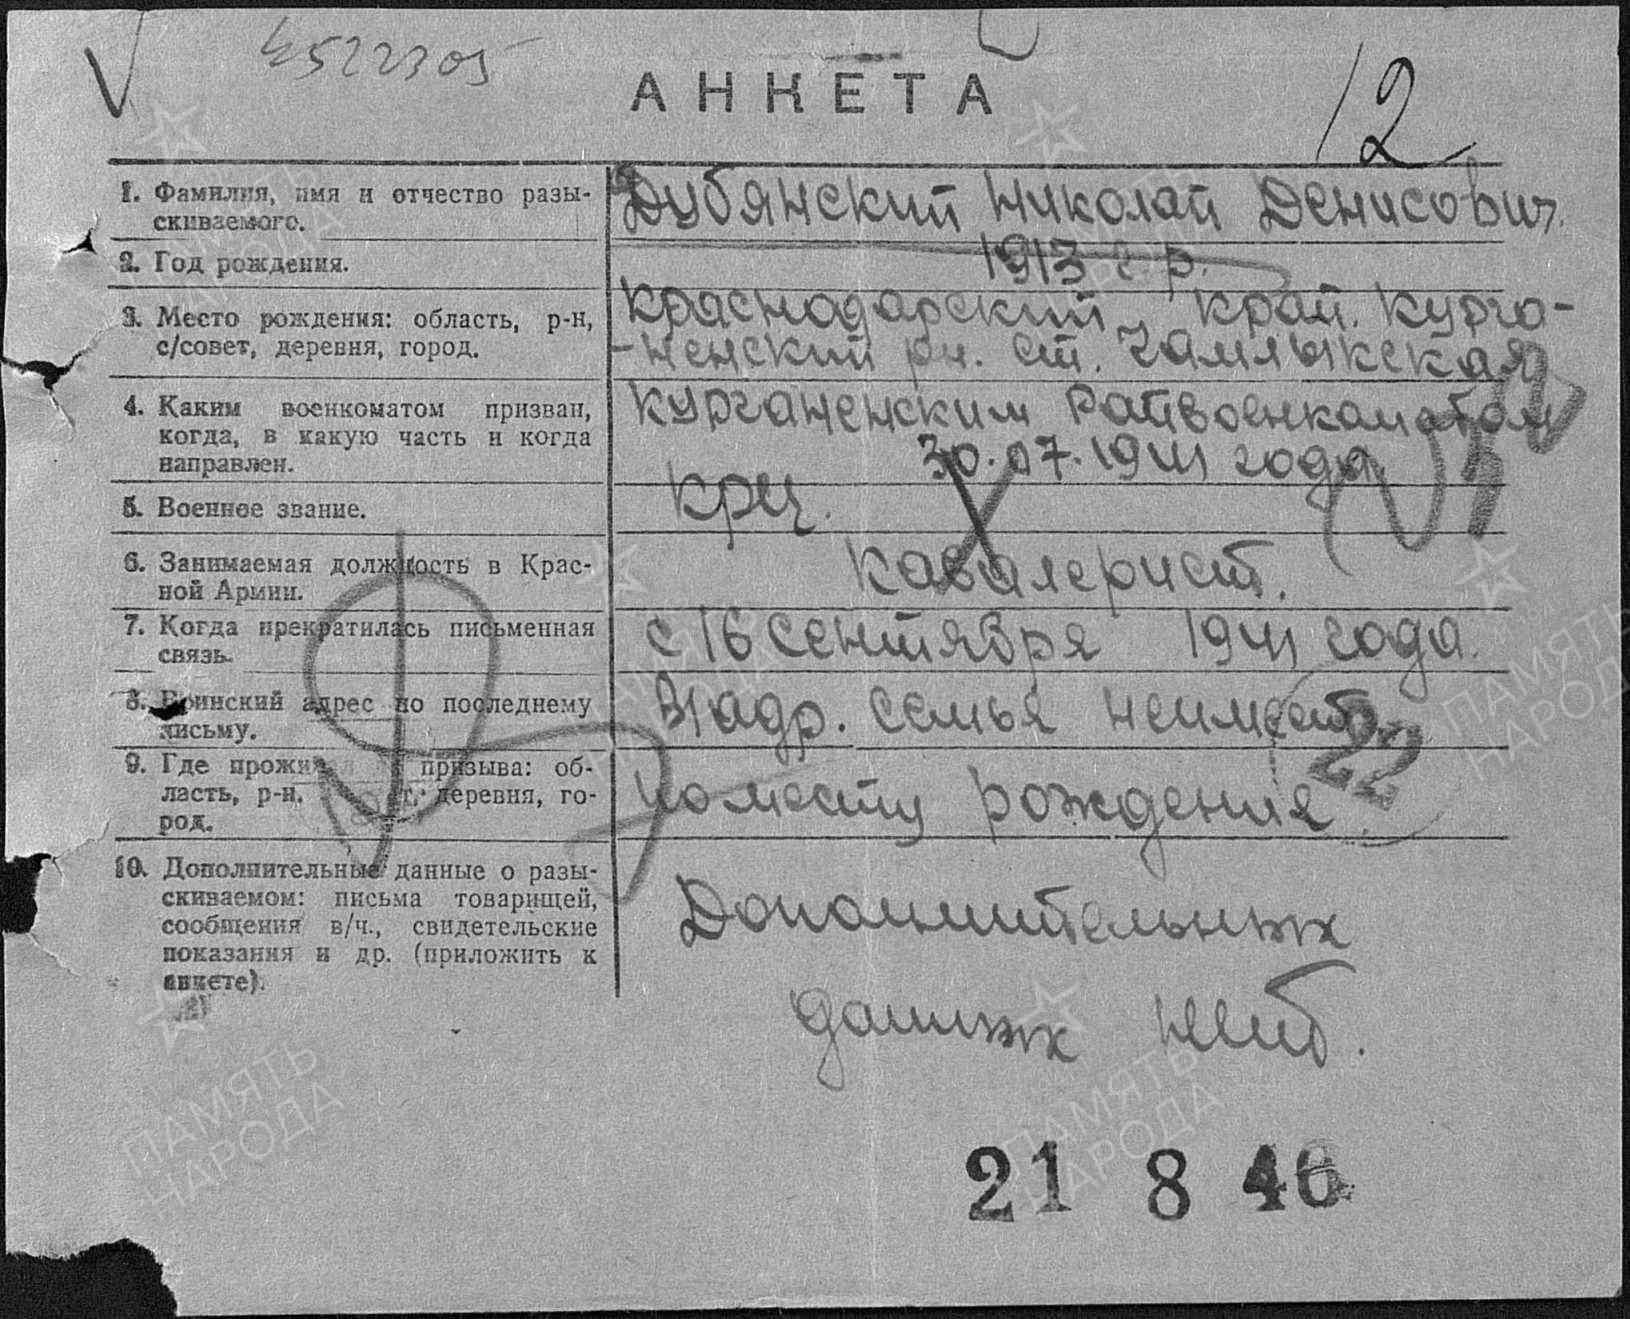 4522305
АНКЕТА
12
1. Фамилия, имя и отчество разы-
скиваемого.
Дубянский Николай Денисович.
2. Год рождения.
1913 г.р.
3. Место рождения: область, р-н,
с/совет, деревня, город.
Краснодарский край. Курга-
-ненский рн. ст. Чамлыкская
4. Каким военкоматом призван,
когда, в какую часть и когда
направлен.
Курганенским Райвоенкоматом
30.07.1941 года
5. Военное звание.
крц.
6. Занимаемая должность в Крас-
ной Армии.
кавалерист.
7. Когда прекратилась письменная
связь.
с 16 сентября 1941 года.
8. Воинский адрес по последнему
письму.
адр. семья неимеет.
22
9. Где прожи призыва: об-
ласть, р-н, деревня, го-
род.
по месту рождения.
10. Дополнительные данные о разы-
скиваемом: письма товарищей,
сообщения в/ч., свидетельские
показания и др. (приложить к
анкете).
Дополнительных
данных нет.
21 8 46
ПАМЯТЬ
НАРОДА